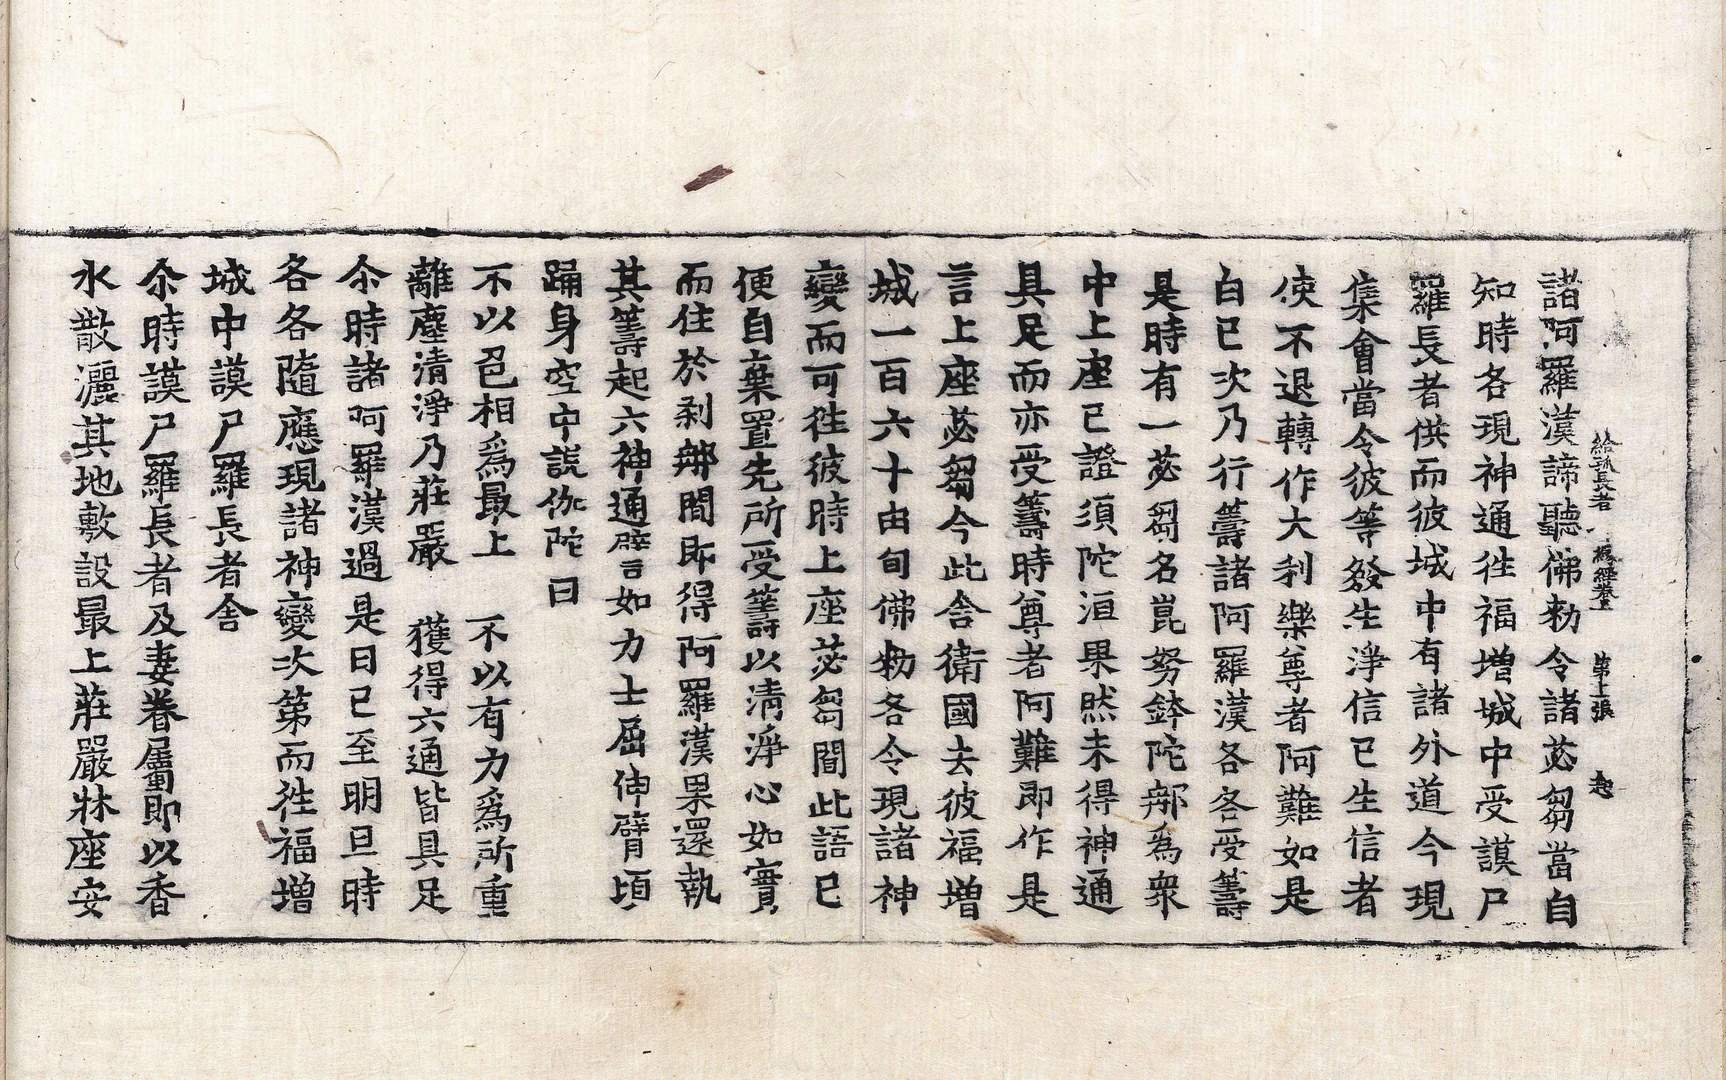 給孤長者 經卷上 第十張
諸阿羅漢諦聽佛勑令諸苾芻當自
知時各現神通徃福增城中受謨尸
羅長者供而彼城中有諸外道今現
集會當令彼等發生淨信已生信者
使不退轉作大利樂尊者阿難如是
白已次乃行籌諸阿羅漢各各受籌
是時有一苾芻名崑努鉢陀那為衆
中上座已證須陀洹果然未得神通
具足而亦受籌時尊者阿難即作是
言上座苾芻今此舍衛國去彼福增
城一百六十由旬佛勑各令現諸神
變而可徃彼時上座苾芻聞此語已
便自棄置先所受籌以清淨心如實
而住於刹那間即得阿羅漢果還執
其籌起六神通譬如力士屈伸臂頃
踊身空中說伽陀曰
不以色相為最上　不以有力為所重
離塵清淨乃莊嚴　獲得六通皆具足
尒時諸阿羅漢過是日已至明旦時
各各隨應現諸神變次第而徃福增
城中謨尸羅長者舍
尒時謨尸羅長者及妻眷屬即以香
水散灑其地敷設最上莊嚴牀座安